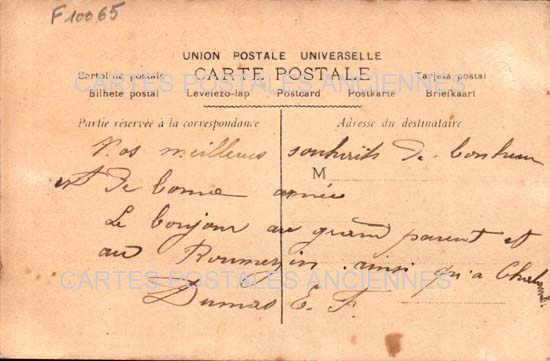 F10065
UNION POSTALE UNIVERSELLE
CARTE POSTALE
Cartolina postale Tarjeta postal
Bilhete postal Levelezo-lap Postcard Postkarte Briefkaart
CARTES POSTALES ANCIENNES
Partie réservée à la correspondance Adresse du destinataire
Nos meilleurs souhaits de bonheur
M
et de bonne année
Le bonjour au grand parent et
au ainsi qu'a
CARTES POSTALES ANCIENNES
Dumas E. F.